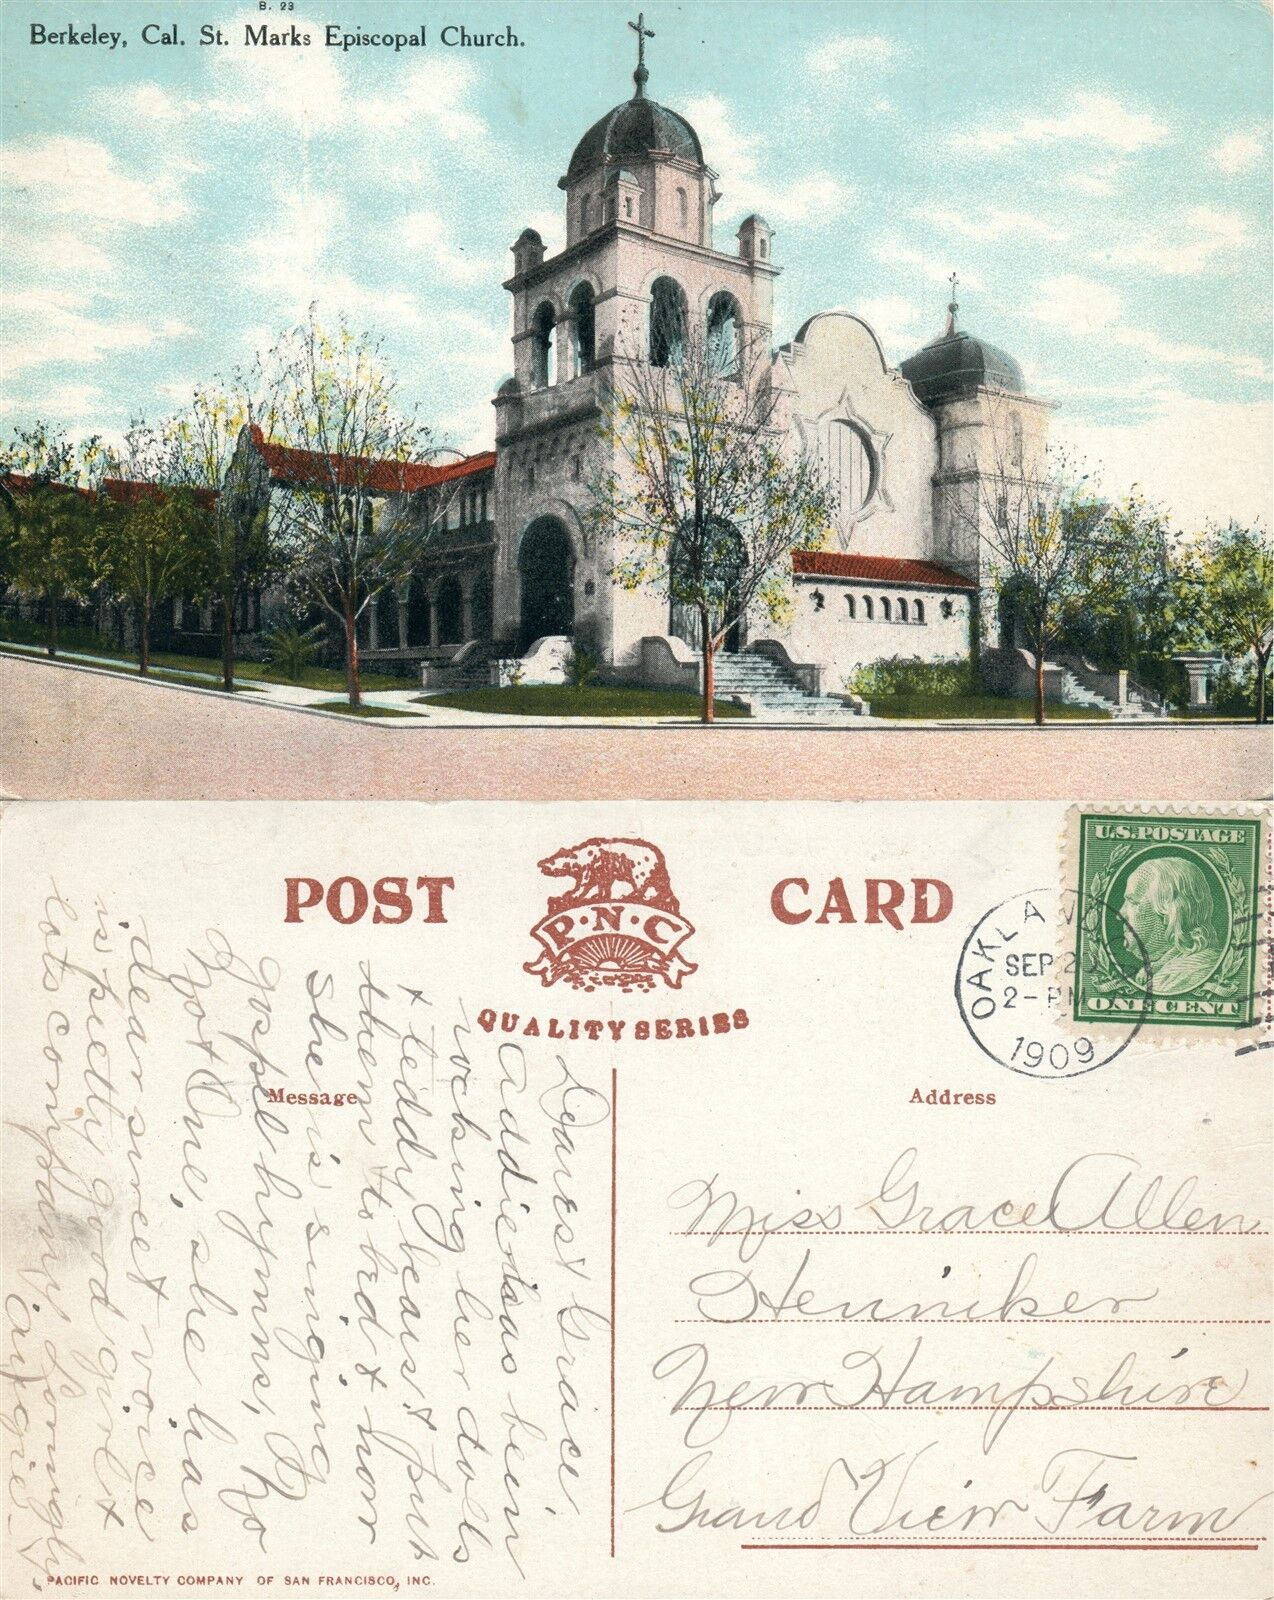 B. 23
Berkeley, Cal. St. Marks Episcopal Church.
POST CARD
P·N·C
QUALITY SERIES
U.S. POSTAGE
ONE CENT
OAKLAND
SEP 2
2-PM
1909
Message
Address
Dearest Grace
Addie has been
rocking her dolls
+ teddy bears + put
them to bed + now
she is singing
gospel hymns,
Not One, she has
dear sweet voice
is pretty good girl +
lots company
Lovingly
Miss Grace Allen
Henniker
New Hampshire
Grand View Farm
PACIFIC NOVELTY COMPANY OF SAN FRANCISCO, INC.